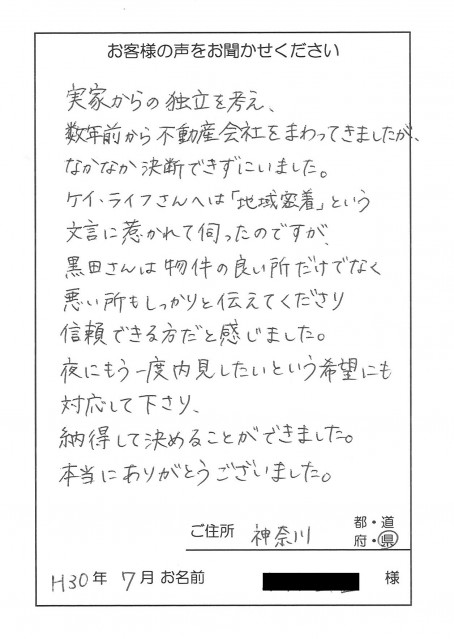 お客様の声をお聞かせください
実家からの独立を考え、
数年前から不動産会社をまわってきましたが、
なかなか決断できずにいました。
ケイ・ライフさんへは「地域密着」という
文言に惹かれて伺ったのですが、
黒田さんは物件の良い所だけでなく
悪い所もしっかりと伝えてくださり
信頼できる方だと感じました。
夜にもう一度内見したいという希望にも
対応して下さり、
納得して決めることができました。
本当にありがとうございました。
ご住所 神奈川 都・道
府・県
H30年 7月 お名前 様